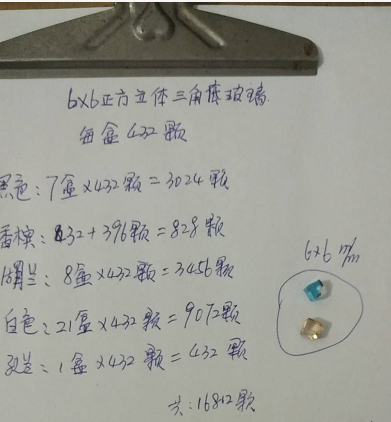 6×6正方立体三角底玻璃
每盒432颗
黑色：7盒×432颗=3024颗
香槟：432+396颗=828颗
湖兰：8盒×432颗=3456颗
白色：21盒×432颗=9072颗
孔兰：1盒×432颗=432颗
共：16812颗
6×6 m/m